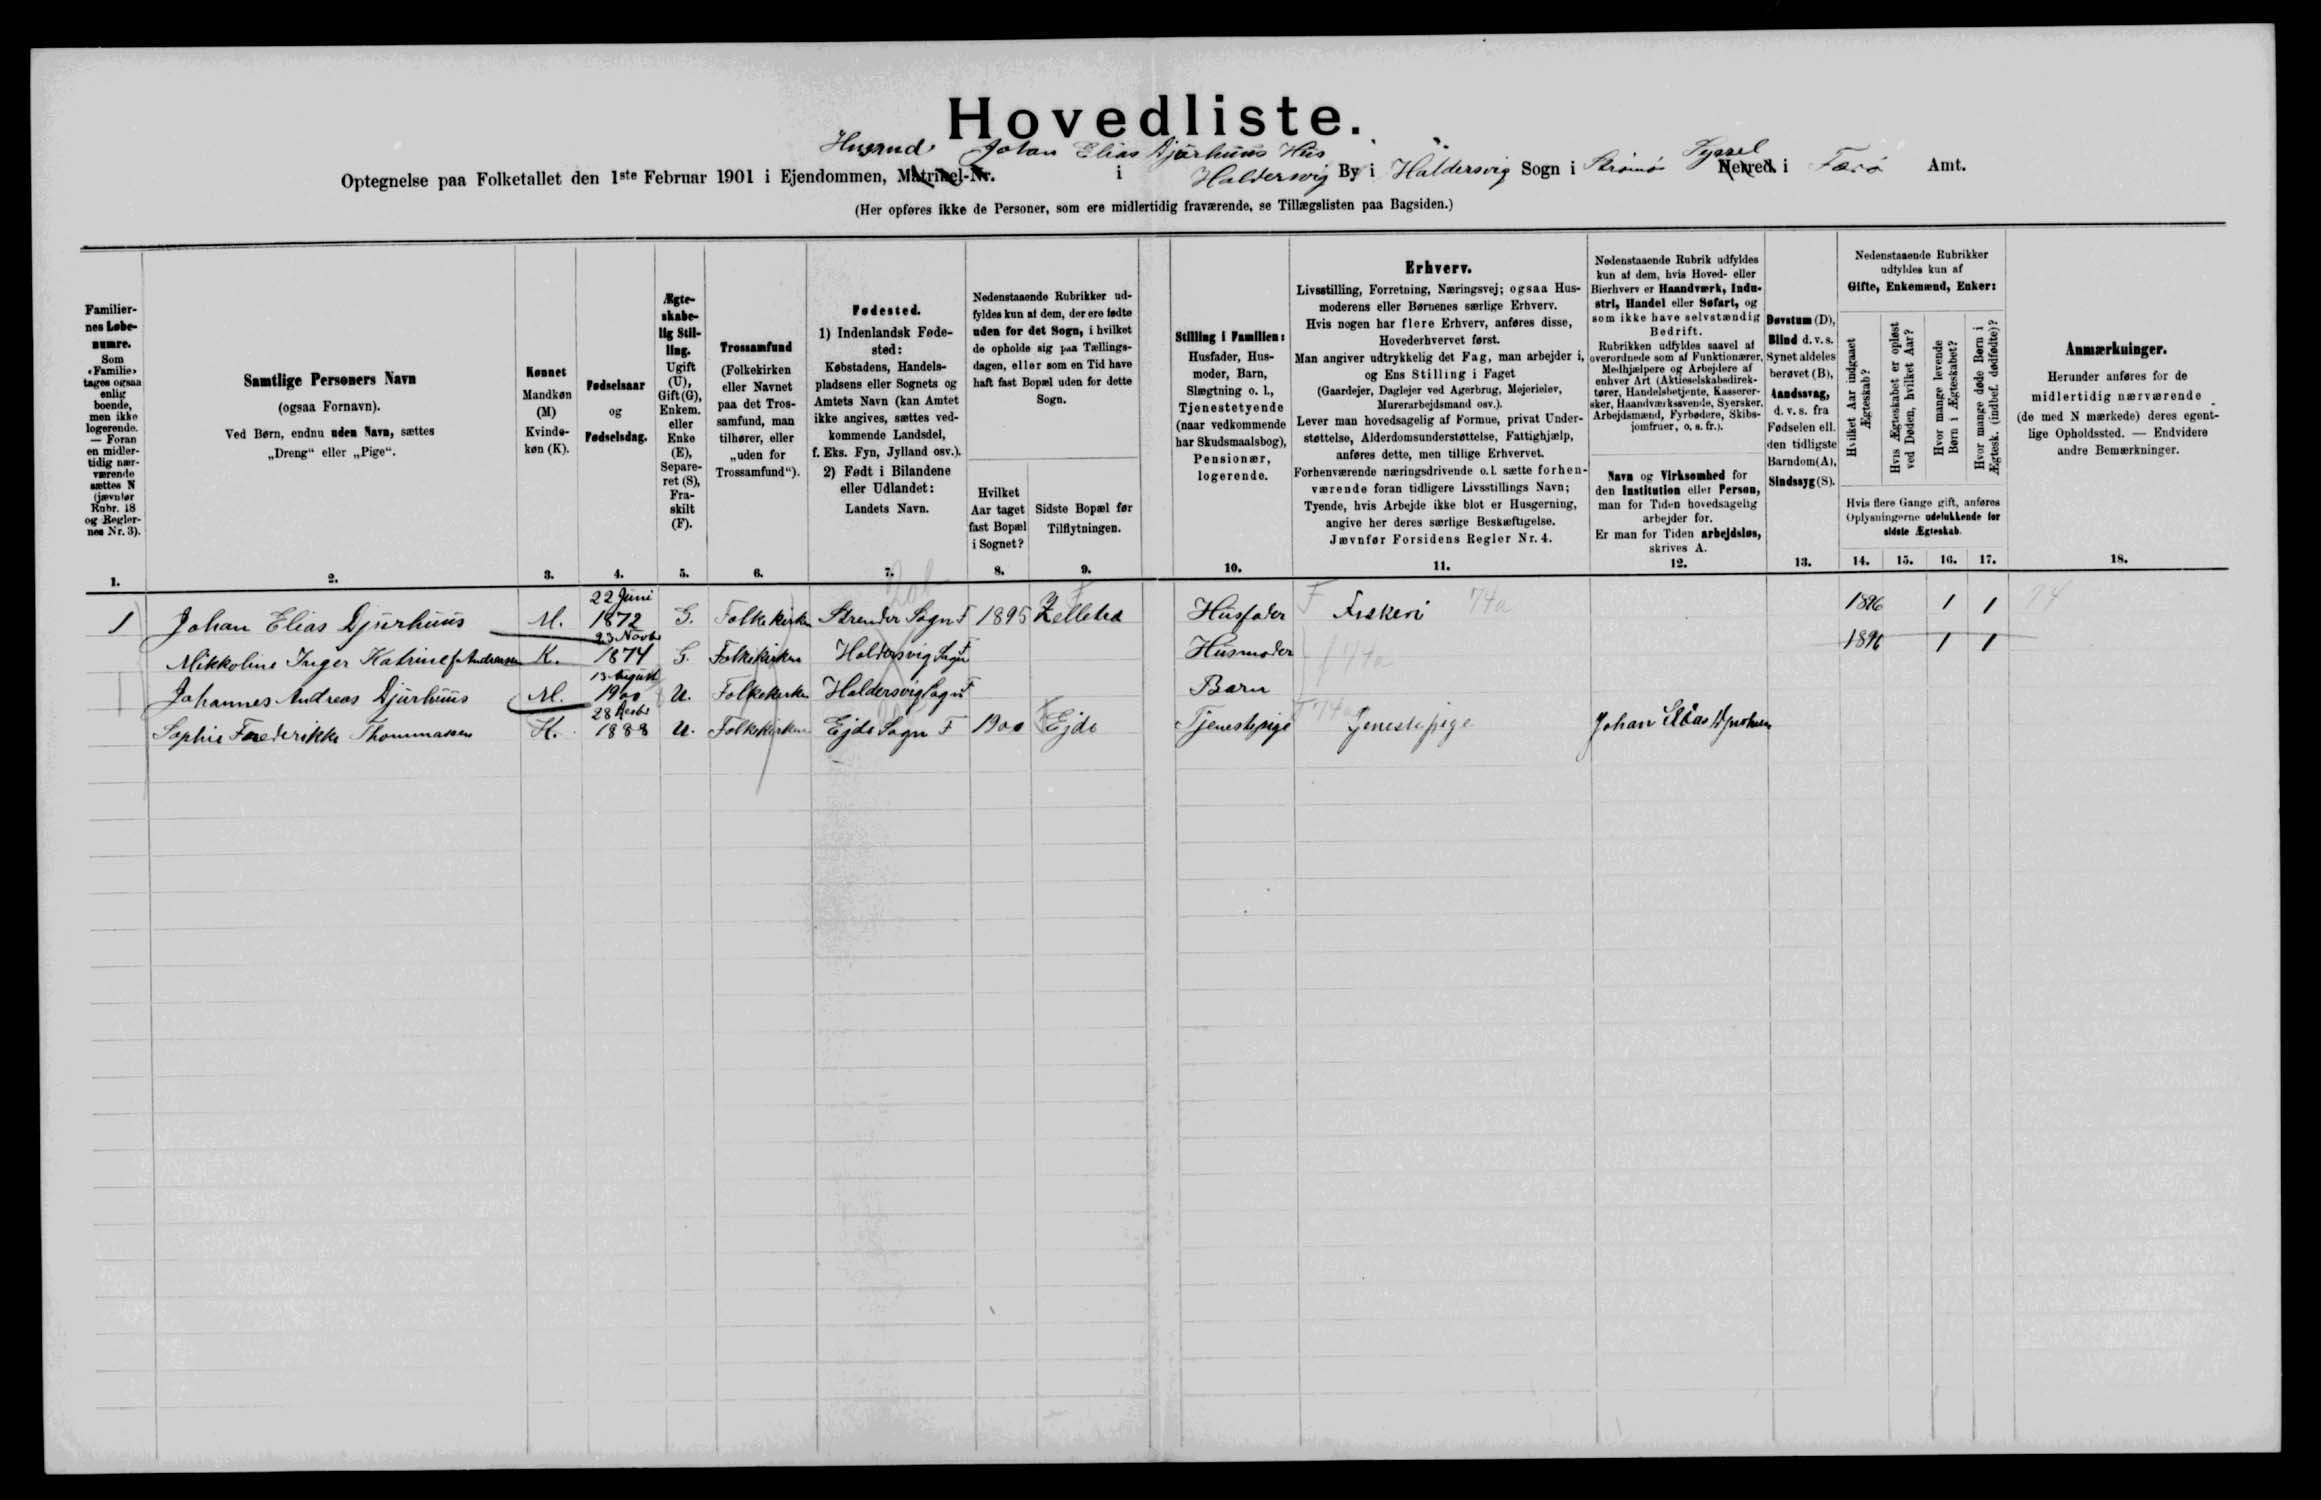 Hovedliste.
Johan Elias Djurhuus Hus
Optegnelse paa Folketallet den 1ste Februar 1901 i Ejendommen, Matrikel-Nr. i Haldersvig By i Haldersvig Sogn i Strömö Syssel Herred i Færö Amt.
(Her opføres ikke de Personer, som ere midlertidig fraværende, se Tillægslisten paa Bagsiden.)
Familiernes Løbenumre.
Som «Familie» tages ogsaa enlig boende, men ikke logerende. — Foran en midlertidig nærværende sættes N (jævnfør Rubr. 18 og Reglernes Nr. 3).
Samtlige Personers Navn
(ogsaa Fornavn).
Ved Børn, endnu uden Navn, sættes
„Dreng“ eller „Pige“.
Kønnet
Mandkøn (M)
Kvindekøn (K).
Fødselsaar
og
Fødselsdag.
Ægteskabelig Stilling.
Ugift (U), Gift (G), Enkem. eller Enke (E), Separeret (S), Fraskilt (F).
Trossamfund
(Folkekirken eller Navnet paa det Trossamfund, man tilhører, eller „uden for Trossamfund“).
Fødested.
1) Indenlandsk Fødested:
Købstadens, Handelspladsens eller Sognets og Amtets Navn (kan Amtet ikke angives, sættes vedkommende Landsdel, f. Eks. Fyn, Jylland osv.).
2) Født i Bilandene eller Udlandet:
Landets Navn.
Nedenstaaende Rubrikker udfyldes kun af dem, der ere fødte uden for det Sogn, i hvilket de opholde sig paa Tællingsdagen, eller som en Tid have haft fast Bopæl uden for dette Sogn.
Hvilket Aar taget fast Bopæl i Sognet?
Sidste Bopæl før Tilflytningen.
Stilling i Familien:
Husfader, Husmoder, Barn, Slægtning o. l., Tjenestetyende (naar vedkommende har Skudsmaalsbog), Pensionær, logerende.
Erhverv.
Livsstilling, Forretning, Næringsvej; ogsaa Husmoderens eller Børnenes særlige Erhverv.
Hvis nogen har flere Erhverv, anføres disse, Hovederhvervet først.
Man angiver udtrykkelig det Fag, man arbejder i, og Ens Stilling i Faget
(Gaardejer, Daglejer ved Agerbrug, Mejerielev, Murerarbejdsmand osv.).
Lever man hovedsagelig af Formue, privat Understøttelse, Alderdomsunderstøttelse, Fattighjælp, anføres dette, men tillige Erhvervet.
Forhenværende næringsdrivende o. l. sætte forhenværende foran tidligere Livsstillings Navn;
Tyende, hvis Arbejde ikke blot er Husgerning, angive her deres særlige Beskæftigelse.
Jævnfør Forsidens Regler Nr. 4.
Nedenstaaende Rubrik udfyldes kun af dem, hvis Hoved- eller Bierhverv er Haandværk, Industri, Handel eller Søfart, og som ikke have selvstændig Bedrift.
Rubrikken udfyldes saavel af overordnede som af Funktionærer, Medhjælpere og Arbejdere af enhver Art (Aktieselskabsdirektører, Handelsbetjente, Kasserersker, Haandværkssvende, Syersker, Arbejdsmænd, Fyrbødere, Skibsjomfruer, o. s. fr.).
Navn og Virksomhed for den Institution eller Person, man for Tiden hovedsagelig arbejder for.
Er man for Tiden arbejdsløs, skrives A.
Døvstum (D), Blind d. v. s. Synet aldeles berøvet (B), Aandssvag, d. v. s. fra Fødselen ell. den tidligste Barndom (A), Sindssyg (S).
Nedenstaaende Rubrikker udfyldes kun af
Gifte, Enkemænd, Enker:
Hvilket Aar indgaaet Ægteskab?
Hvis Ægteskabet er opløst ved Døden, hvilket Aar?
Hvor mange levende Børn i Ægteskabet?
Hvor mange døde Børn i Ægtesk. (indbef. dødfødte)?
Hvis flere Gange gift, anføres Oplysningerne udelukkende for sidste Ægteskab.
Anmærkninger.
Herunder anføres for de midlertidig nærværende (de med N mærkede) deres egentlige Opholdssted. — Endvidere andre Bemærkninger.
1. 2. 3. 4. 5. 6. 7. 8. 9. 10. 11. 12. 13. 14. 15. 16. 17. 18.
1 Johan Elias Djurhuus M. 22 Juni 1872 G. Folkekirken Strender Sogn F 1895 Zelletræ Husfader F Fiskeri 74a 1896 1 1 24
Mikkoline Inger Katrine f. Andreasen K. 23 Novbr 1874 G. Folkekirken Haldersvig Sogn F Husmoder 74a 1896 1 1
Johannes Andreas Djurhuus M. 13 August 1900 U. Folkekirken Haldersvig Sogn F Barn
Sophie Frederikke Thommassen K. 28 1888 U. Folkekirken Ejde Sogn F 1900 Ejde Tjenestepige 74a Tjenestepige Johan Elias